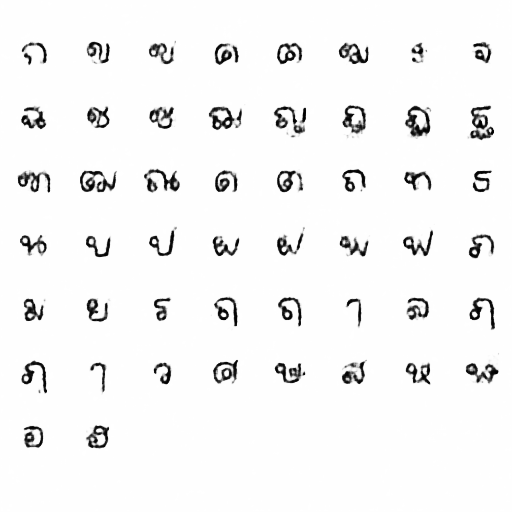 ก ข ฃ ค ฅ ฆ จ
ฉ ช ซ ฌ ญ ฎ ฏ ฐ
ฑ ฒ ณ ด ต ถ ท ธ
น บ ป ผ ฝ พ ฟ ภ
ม ย ร ฤ ฤ า ล ฦ
ฦ า ว ศ ษ ส ห ฬ
อ ฮ